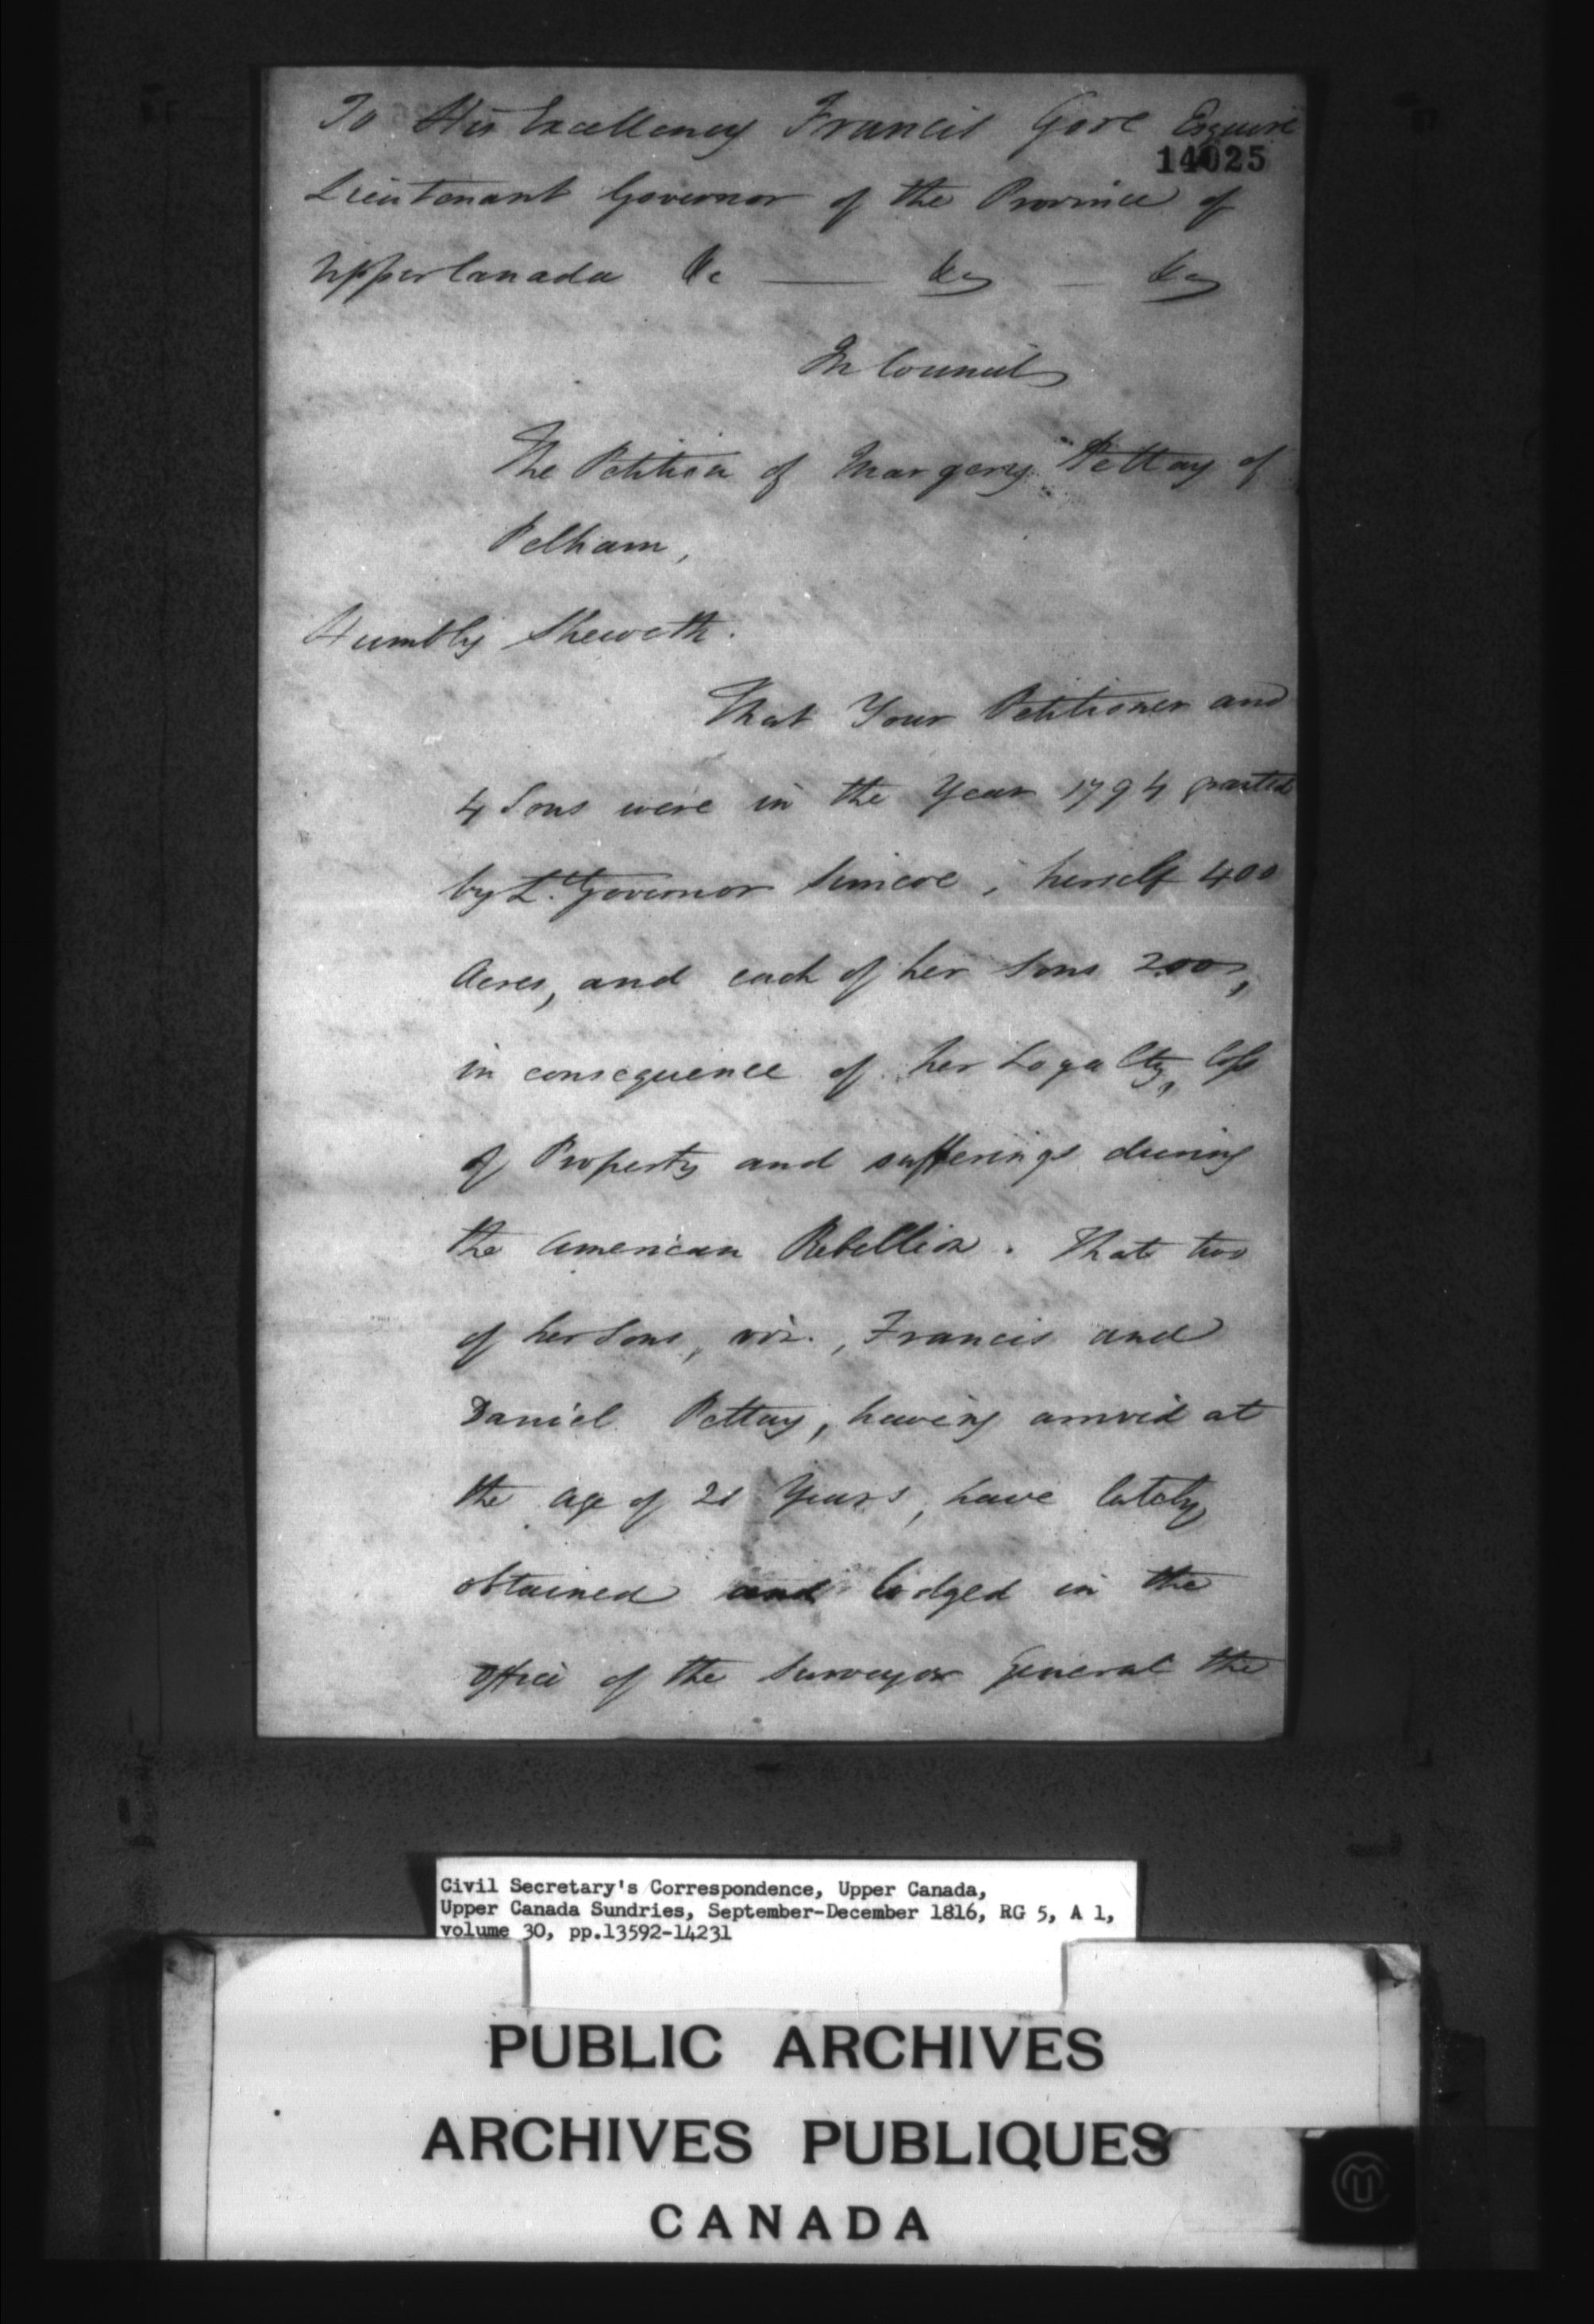 To His Excellency Francis Gore Esquire
14025
Lieutenant Governor of the Province of
Upper Canada &c — &c — &c
In Council
The Petition of Margery Pettay of
Pelham,
Humbly Sheweth.
That Your Petitioner and
4 Sons were in the Year 1794 granted
by Lt. Governor Simcoe, herself 400
Acres, and each of her Sons 200,
in consequence of her Loyalty, loss
of Property and sufferings during
the American Rebellion. That two
of her Sons, viz., Francis and
Daniel Pettay, having arrived at
the age of 21 Years, have lately
obtained and lodged in the
office of the Surveyor General the
Civil Secretary's Correspondence, Upper Canada,
Upper Canada Sundries, September-December 1816, RG 5, A 1,
volume 30, pp.13592-14231
PUBLIC ARCHIVES
ARCHIVES PUBLIQUES
CANADA